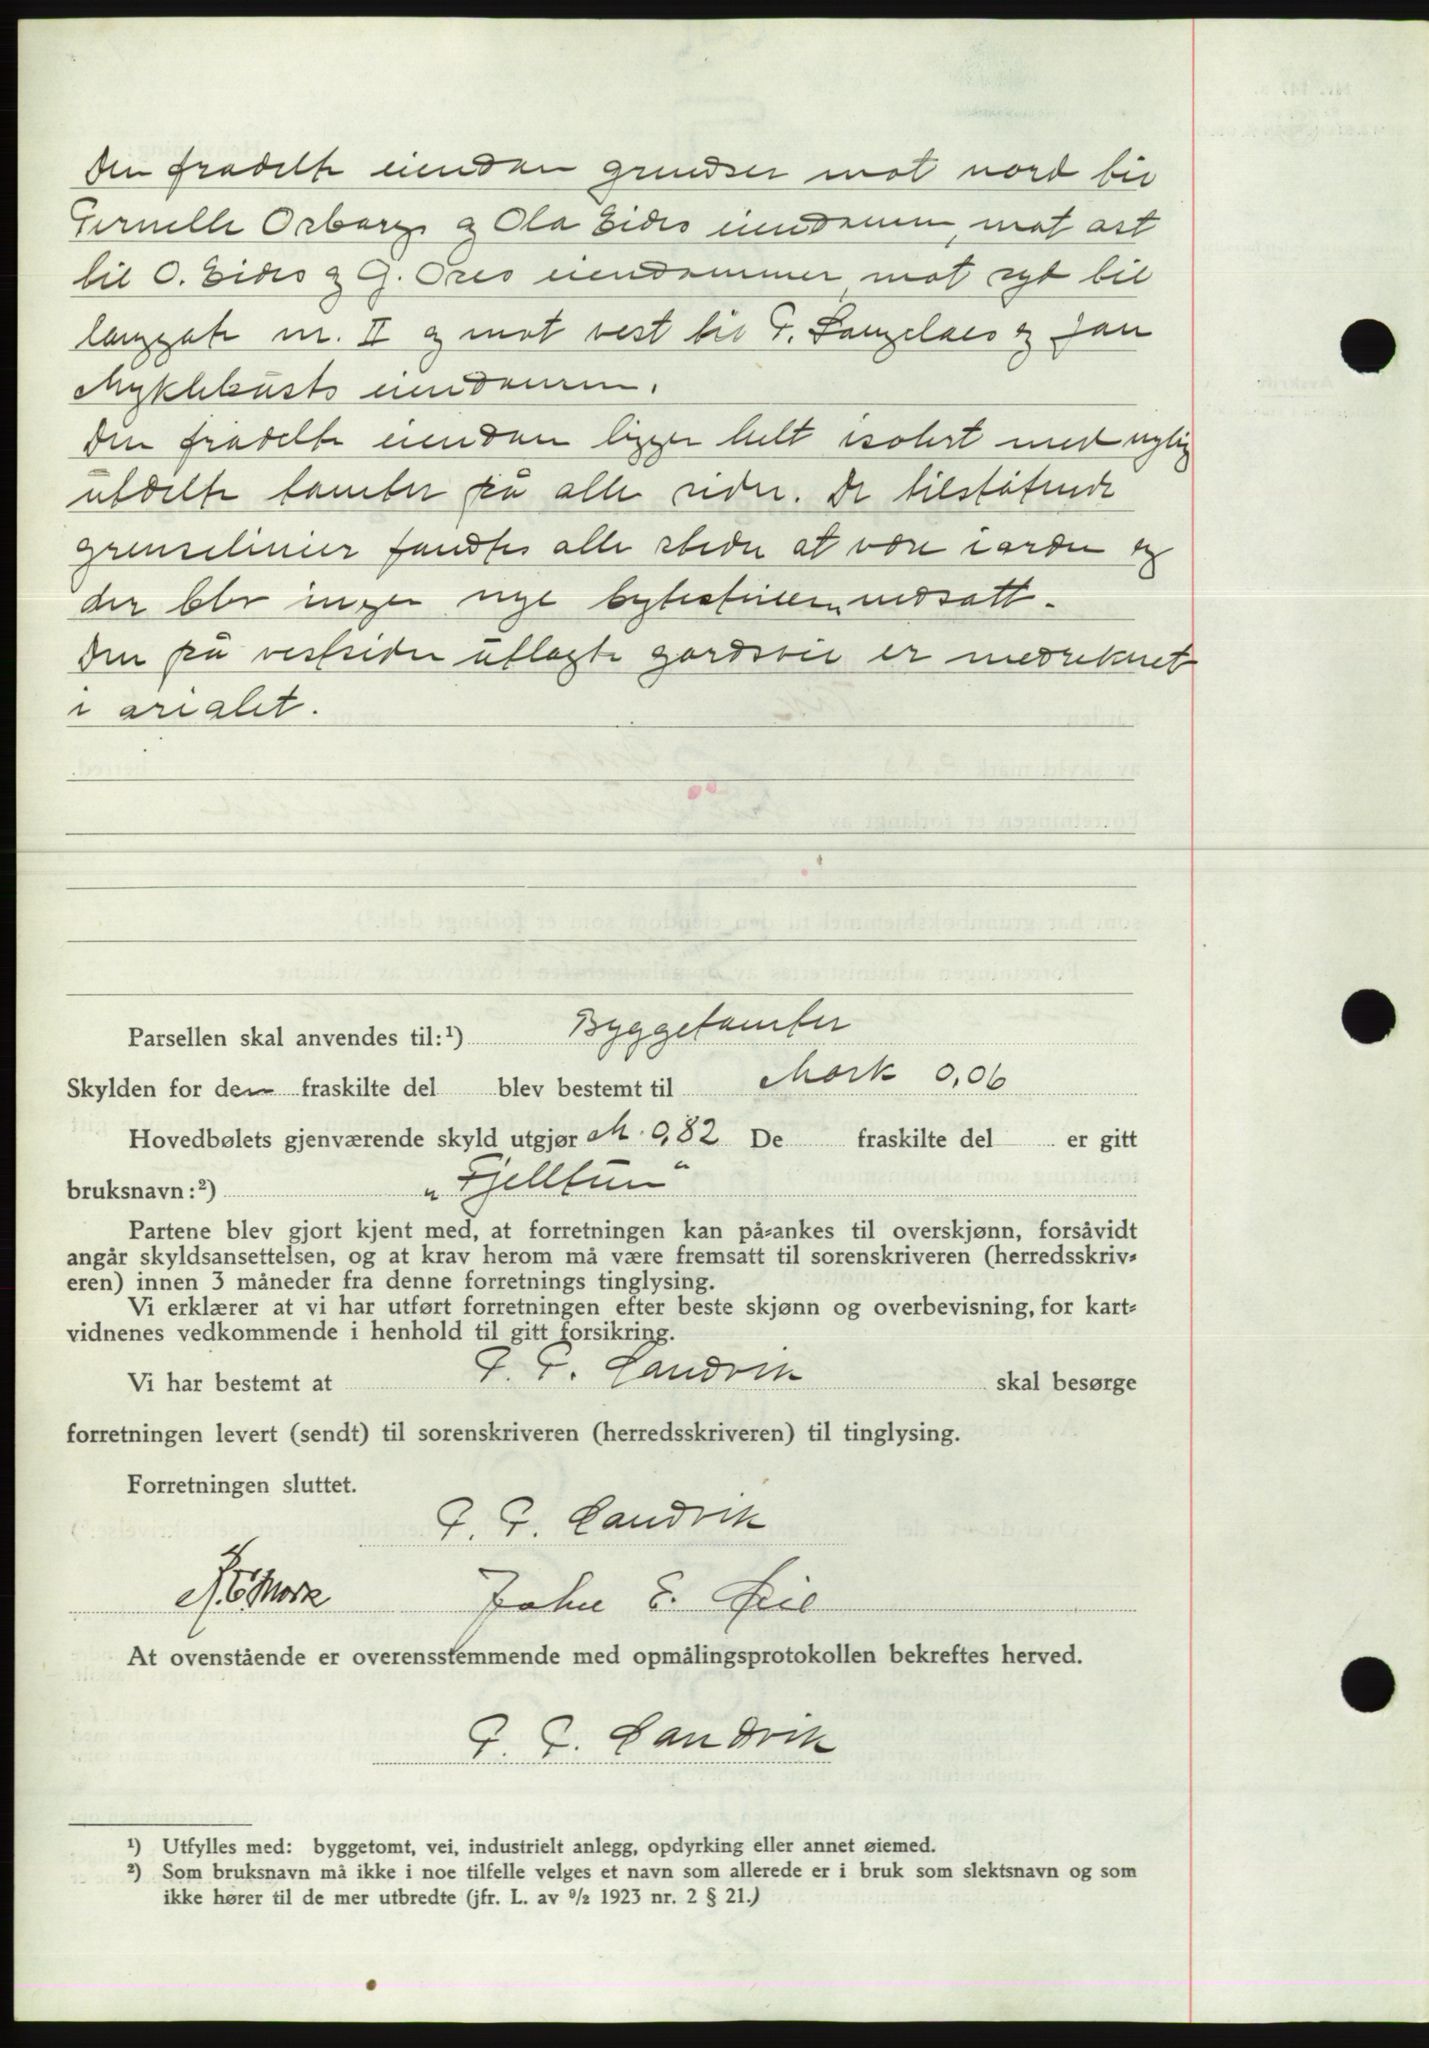 Den fradelte eiendom grendser mot nord til
Pernelle Osborgs og Ola Eides eiendommer, mot øst
til O. Eides og G. Ores eiendommer, mot syd til
langgate nr. II og mot vest til P. Langelaes og Jan
Myklebusts eiendommer.
Den fradelte eiendom ligger helt isolert med nylig
utdelte tomter på alle sider. De tilstøtende
grenselinier fandtes alle steder at være i orden og
der blev ingen nye bytestener nedsatt.
Den på vestsiden utlagte gardsvei er medreknet
i arialet.
Parsellen skal anvendes til:¹) Byggetomter
Skylden for den fraskilte del blev bestemt til Mark 0,06
Hovedbølets gjenværende skyld utgjør M. 0,82 De fraskilte del er gitt
bruksnavn:²) „Fjelltun“
Partene blev gjort kjent med, at forretningen kan på-ankes til overskjønn, forsåvidt
angår skyldsansettelsen, og at krav herom må være fremsatt til sorenskriveren (herredsskriv-
eren) innen 3 måneder fra denne forretnings tinglysing.
Vi erklærer at vi har utført forretningen efter beste skjønn og overbevisning, for kart-
vidnenes vedkommende i henhold til gitt forsikring.
Vi har bestemt at P. P. Landvik skal besørge
forretningen levert (sendt) til sorenskriveren (herredsskriveren) til tinglysing.
Forretningen sluttet.
P. P. Landvik
Mork John E. Øie
At ovenstående er overensstemmende med opmålingsprotokollen bekreftes herved.
P. P. Landvik
¹) Utfylles med: byggetomt, vei, industrielt anlegg, opdyrking eller annet øiemed.
²) Som bruksnavn må ikke i noe tilfelle velges et navn som allerede er i bruk som slektsnavn og som
ikke hører til de mer utbredte (jfr. L. av 9/2 1923 nr. 2 § 21.)